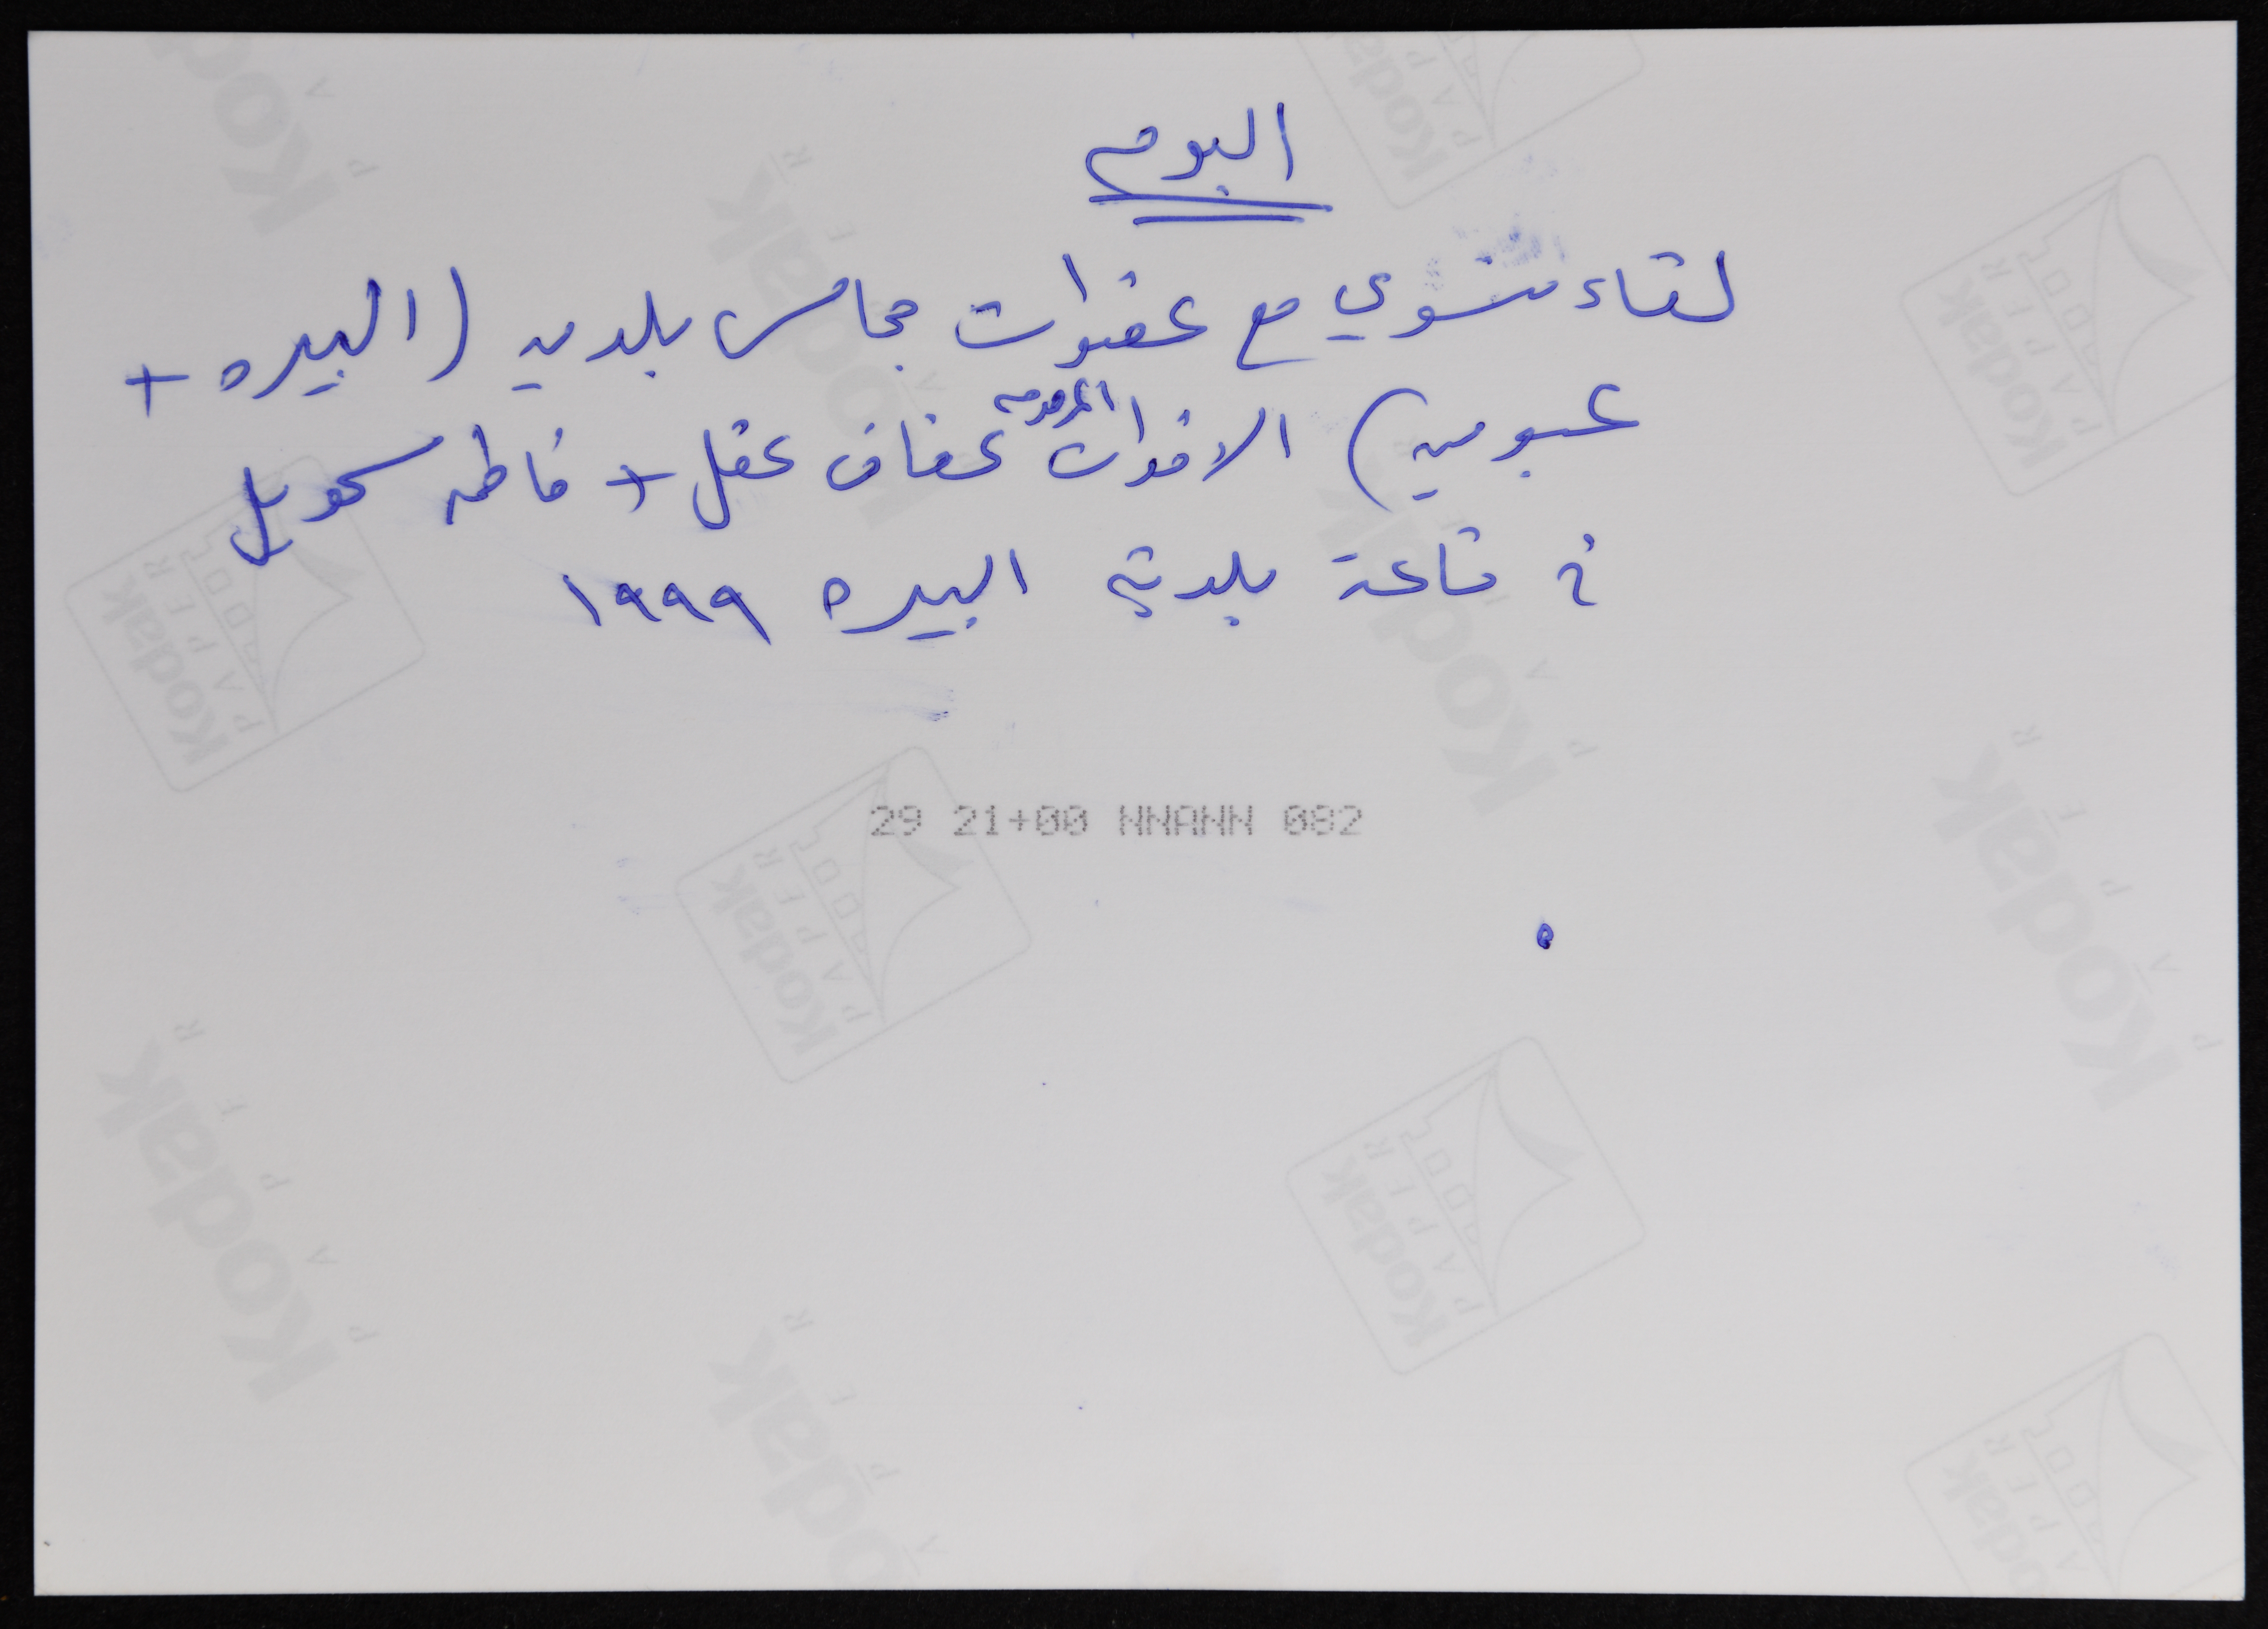 البوم
لقاء نسوي مع عضوات مجالس بلديه (البيره +
عبوين) الاخوات المرحومه عفاف عقل + فاطمه سحويل
في قاعة بلدية البيره ١٩٩٩
29 21+00 NNANN 082
Kodak
PAPER